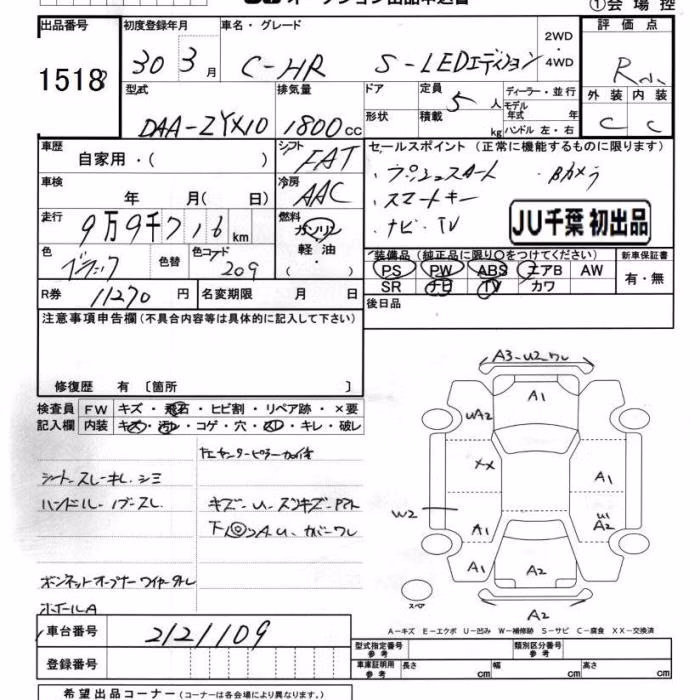 ①会場控
出品番号 初度登録年月 車名・グレード 2WD・4WD 評価点
1518 30 3月 C-HR S-LEDエディション R
型式 排気量 ドア 定員 ディーラー・並行 外装 内装
DAA-ZYX10 1800cc 形状 5人 積載 kg モデル年式 年 ハンドル 左・右 C C
車歴 自家用・( ) シフト FAT セールスポイント (正常に機能するものに限ります)
・プッシュスタート ・Bカメラ
車検 年 月( 日) 冷房 AAC ・スマートキー
・ナビ・TV JU千葉 初出品
走行 9万9千716km 燃料 ガソリン 軽・油 ( )
色 ブラック 色替 色コード 209 装備品 (純正品に限り○をつけてください) 新車保証書
PS PW ABS エアB AW 有・無
SR ナビ TV カワ
R券 11270円 名変期限 月 日 後日品
注意事項申告欄(不具合内容等は具体的に記入して下さい)
修復歴 有 〔箇所 〕
検査員 FW キズ・飛石・ヒビ割・リペア跡・×要
記入欄 内装 キズ・汚レ・コゲ・穴・スレ・キレ・破レ
シート スレ キレ シミ
ハンドル
キズ・U・スリキズ
下
ボンネットオープナーワイヤー
ホイールA
A3-U2-ワレ
A1
UA2
XX
A1
W2
U1
A2
A1
A1
A2
スペア
A2
A-キズ E-エクボ U-凹み W-補修跡 S-サビ C-腐食 XX-交換済
車台番号 2121109
型式指定番号 参考 類別区分番号 参考
登録番号 車庫証明用 参考 長さ cm 幅 cm 高さ cm
希望出品コーナー (コーナーは各会場により異なります。)